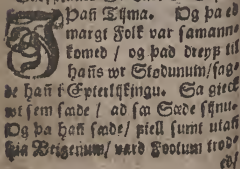 J Þañ Tijma. Og þa ed
margt Folk var samann=
komed / og þad dreyf til
hañs wr Stodunum / sag=
de hañ i Epterlijkingu. Sa gieck
wt sem sæde / ad sa Sæde sijnu.
Og þa hañ sæde / fiell sumt utañ
hia Veigenum / vard Footum trod=
ed /